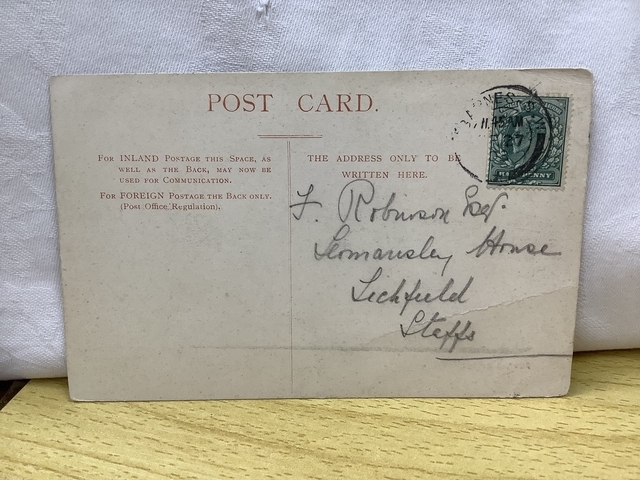 POST CARD.
FOR INLAND POSTAGE THIS SPACE, AS
WELL AS THE BACK, MAY NOW BE
USED FOR COMMUNICATION.
FOR FOREIGN POSTAGE THE BACK ONLY.
(Post Office Regulation).
THE ADDRESS ONLY TO BE
WRITTEN HERE.
11.45 AM
HALFPENNY
F. Robinson Esq.
Leomansley House
Lichfield
Staffs